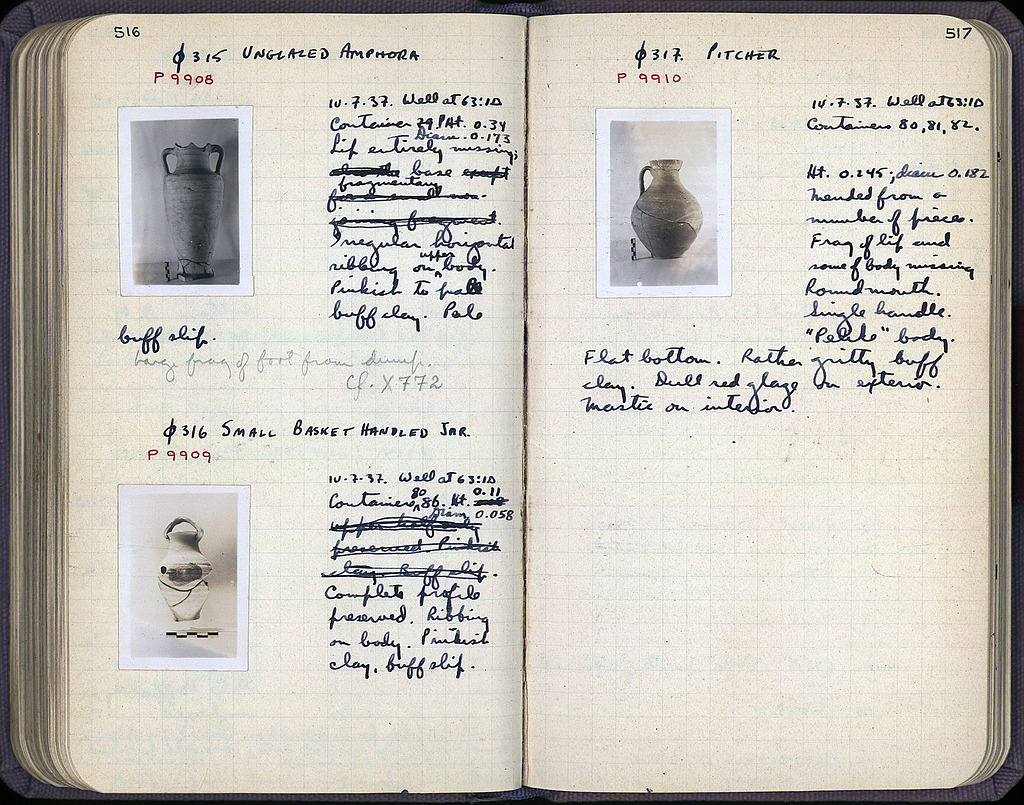 516
ϕ315 UNGLAZED AMPHORA
P 9908
10.7.37. Well at 63:ΙΔ
Container 79 P.Ht. 0.34
Diam. 0.173
Lip entirely missing;
base except
fragmentary
found small non-
joining fragment.
Irregular horizontal
ribbing on upper body.
Pinkish to pale
buff clay. Pale
buff slip.
Large frag of foot from dump.
Cf. X772
ϕ316 SMALL BASKET HANDLED JAR.
P 9909
10.7.37. Well at 63:ΙΔ
Containers 80, 86. Ht. 0.11
Diam. 0.058
upper half only
preserved. Pinkish
clay. Buff slip.
Complete profile
preserved. Ribbing
on body. Pinkish
clay, buff slip.
517
ϕ317. PITCHER
P 9910
10.7.37. Well at 63:ΙΔ
Containers 80, 81, 82.
Ht. 0.245; diam 0.182
Mended from a
number of pieces.
Frag of lip and
some of body missing
Round mouth.
Single handle.
"Pelike" body.
Flat bottom. Rather gritty buff
clay. Dull red glaze on exterior.
Mastic on interior.